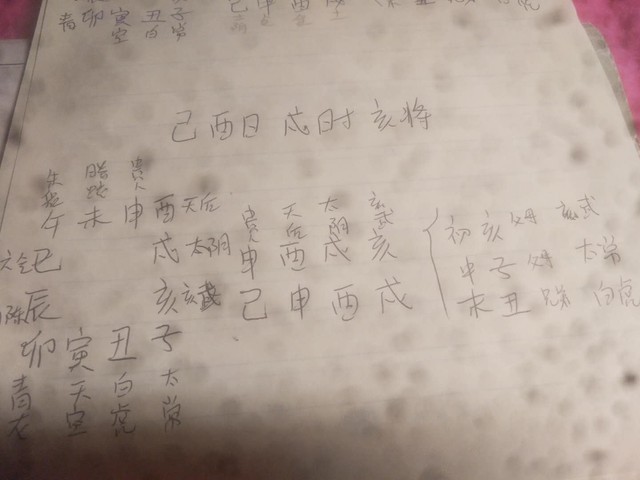 青 卯 寅 丑 子
空 白 常
己 申 酉
己酉日 戌时 亥将
朱雀 螣蛇 贵人
午 未 申 酉 天后
贵人 天后 太阴 玄武
六合 巳 戌 太阴 申 酉 戌 亥
陈 辰 亥 玄武 己 申 酉 戌
初 亥 父母 玄武
中 子 父母 太常
末 丑 兄弟 白虎
卯 寅 丑 子
青龙 天空 白虎 太常